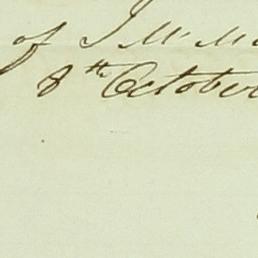 of J McM
8th October